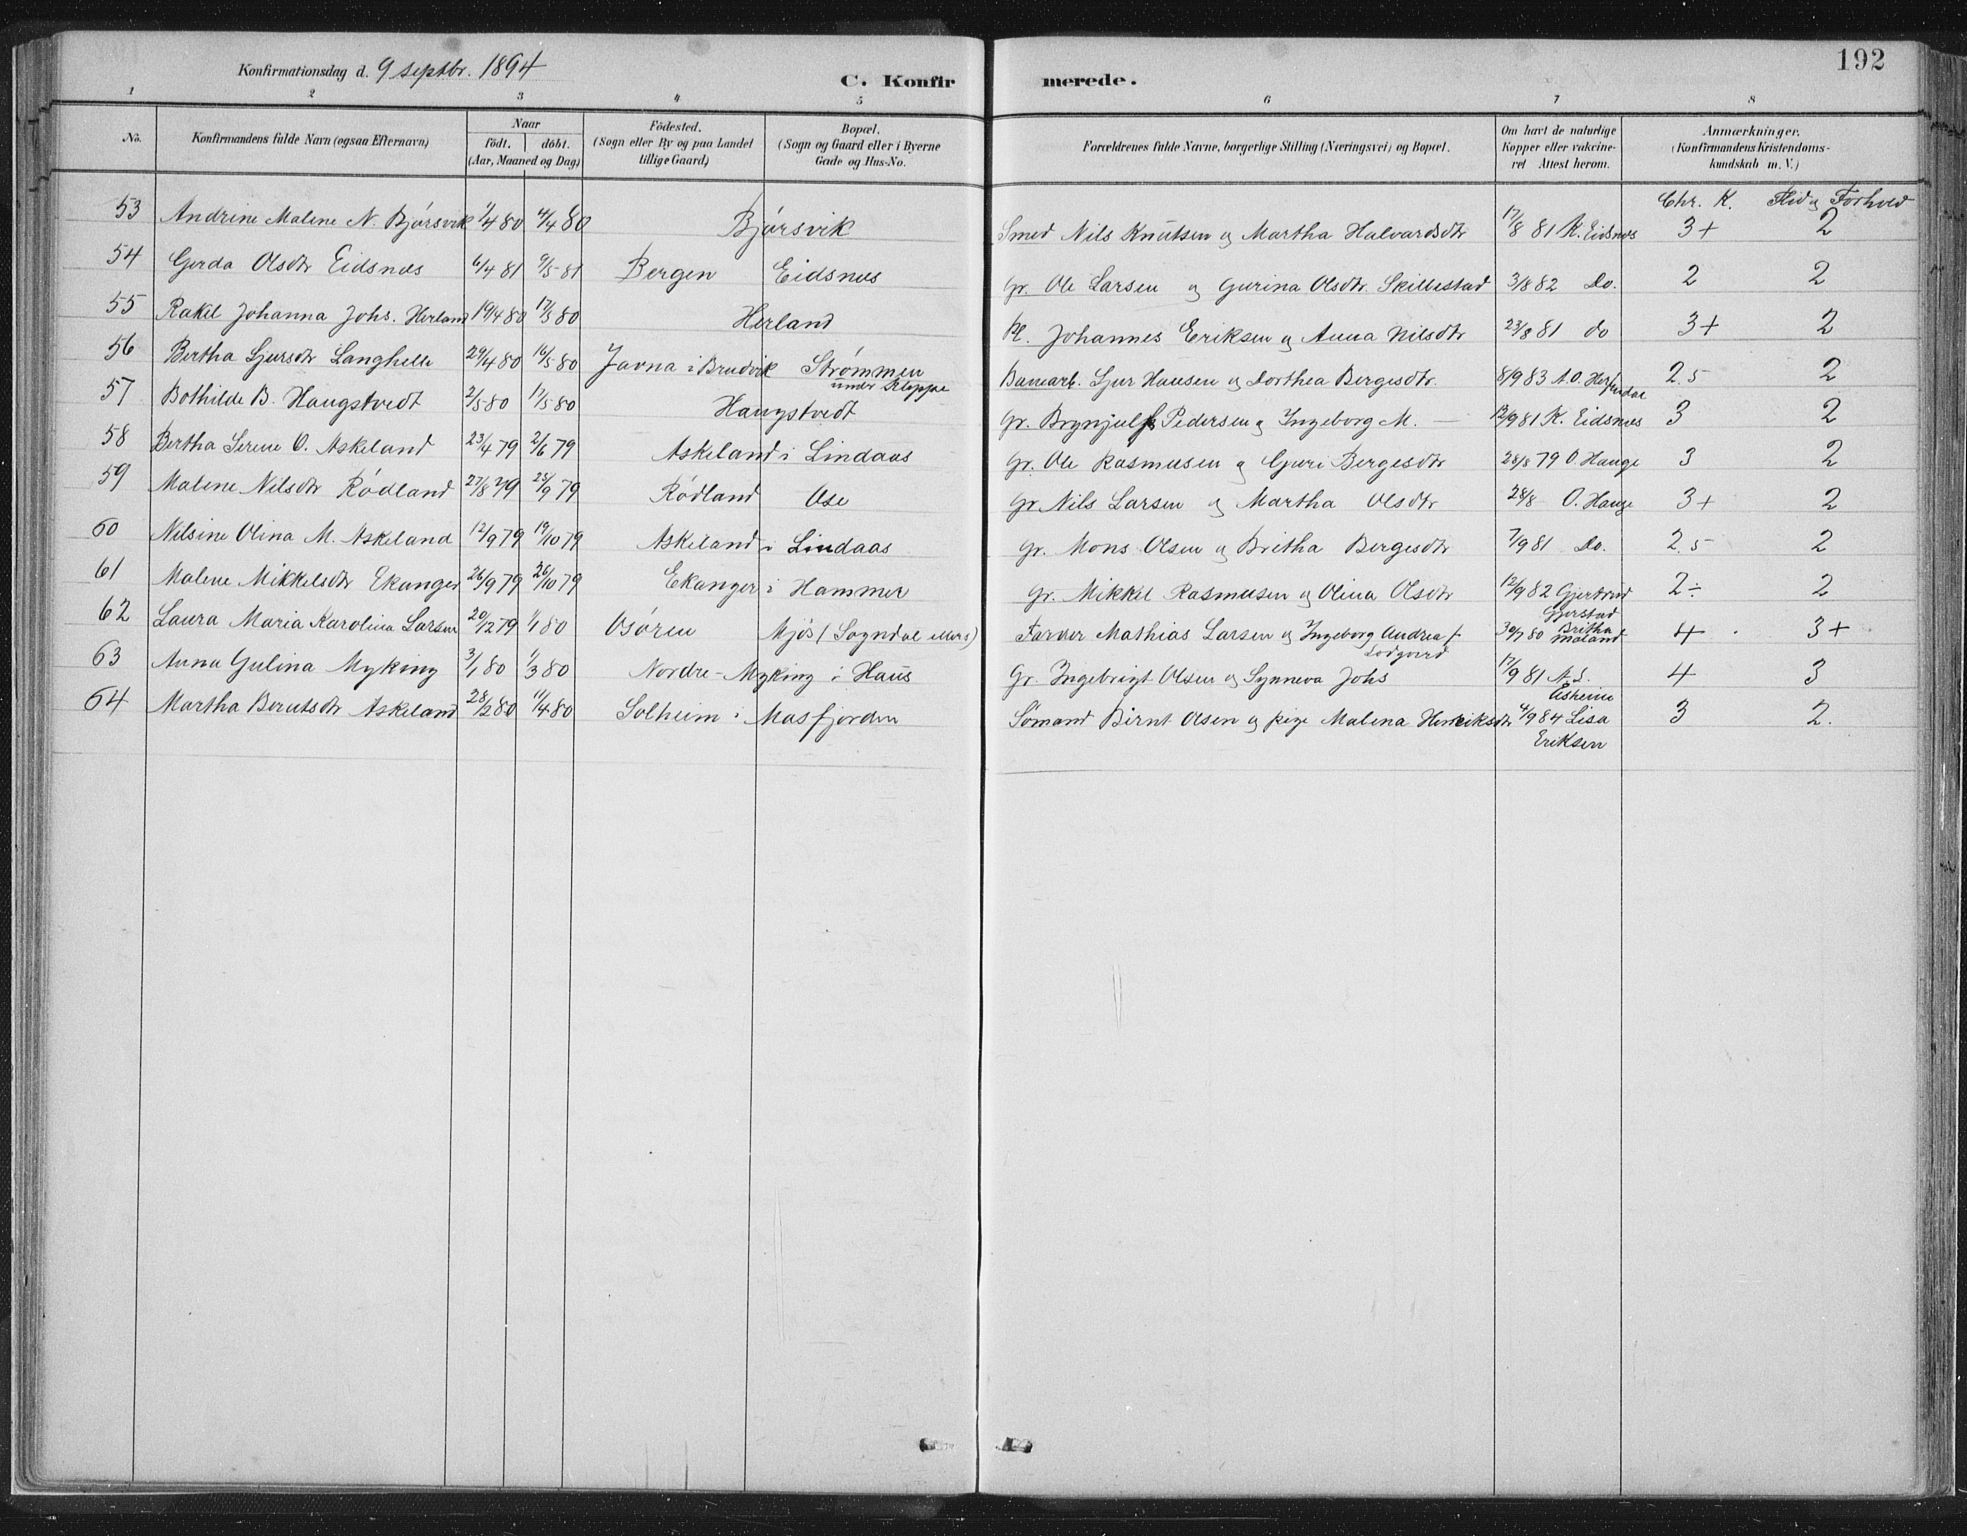 192
Konfirmationsdag d. 9 septbr. 1894 C. Konfirmerede.
1 2 3 4 5 6 7 8
No. Konfirmandens fulde Navn (ogsaa Efternavn) Naar født. døbt. (Aar, Maaned og Dag) Fødested. (Sogn eller By og paa Landet tillige Gaard) Bopæl. (Sogn og Gaard eller i Byerne Gade og Hus-No. Forældrenes fulde Navne, borgerlige Stilling (Næringsvei) og Bopæl. Om havt de naturlige Kopper eller vakcineret Attest herom. Anmærkninger. (Konfirmandens Kristendomskundskab m. V.)
Chr. K. Flid og Forhold
53 Andrine Malene N. Bjørsvik 1/4 80 4/4 80 Bjørsvik Smed Nils Knutsen og Martha Halvardsdtr 17/8 81 K. Eidsnes 3+ 2
54 Gerda Olsdtr Eidsnes 6/4 81 9/5 81 Bergen Eidsnes Gr. Ole Larsen og Gurina Olsdtr. Skillestad 3/8 82 Do. 2 2
55 Rakel Johanna Johs. Herland 19/4 80 17/5 80 Herland Pl. Johannes Eriksen og Anna Nilsdtr 23/8 81 do 3+ 2
56 Bertha Sjursdtr Langhelle 29/4 80 16/5 80 Javna i Bruvik Strømmen under Kleppe Banearb. Sjur Hansen og Dorthea Bergesdtr. 8/9 83 A.O. Herfindal 2.5 2
57 Bothilde B. Haugstvedt 2/5 80 17/5 80 Haugstvedt Gr. Brynjulf Pedersen og Ingeborg M. — 12/9 81 K. Eidsnes 3 2
58 Bertha Serene O. Askeland 23/4 79 2/6 79 Askeland i Lindaas Gr. Ole Rasmusen og Guri Bergesdtr 28/8 79 O. Hauge 3 2
59 Malene Nilsdtr Rødland 27/8 79 28/9 79 Rødland Ose Gr. Nils Larsen og Martha Olsdtr 28/8 O. Hauge 3+ 2
60 Nilsine Olina M. Askeland 12/9 79 19/10 79 Askeland i Lindaas Gr. Mons Olsen og Britha Bergesdtr 7/9 81 Do. 2.5 2
61 Malene Mikkelsdtr Ekanger 26/9 79 26/10 79 Ekanger i Hammer Gr. Mikkel Rasmusen og Olina Olsdtr 12/9 82 Gjertrud Gjerstad 2÷ 2
62 Laura Maria Karolina Larsen 20/12 79 1/1 80 Osøren Mjøs (Sogndal ellers) Farver Mathias Larsen og Ingeborg Andrea f. Lodgaard 30/7 80 Britha Moland 4 3+
63 Anna Gulina Myking 3/1 80 1/3 80 Nordre-Myking i Haus Gr. Ingebrigt Olsen og Synneva Johs 17/9 81 A.S. Åsheim 4 3
64 Martha Berntsdtr Askeland 28/2 80 11/4 80 Solheim i Masfjorden Sømand Bernt Olsen og pige Malena Henriksdtr 4/9 84 Lisa Eriksen 3 2.